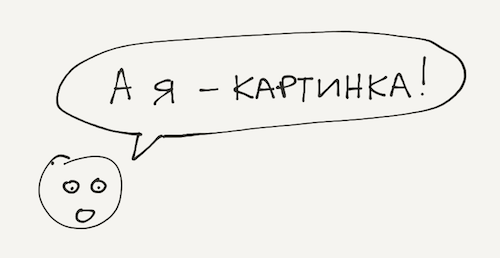 А я – КАРТИНКА!